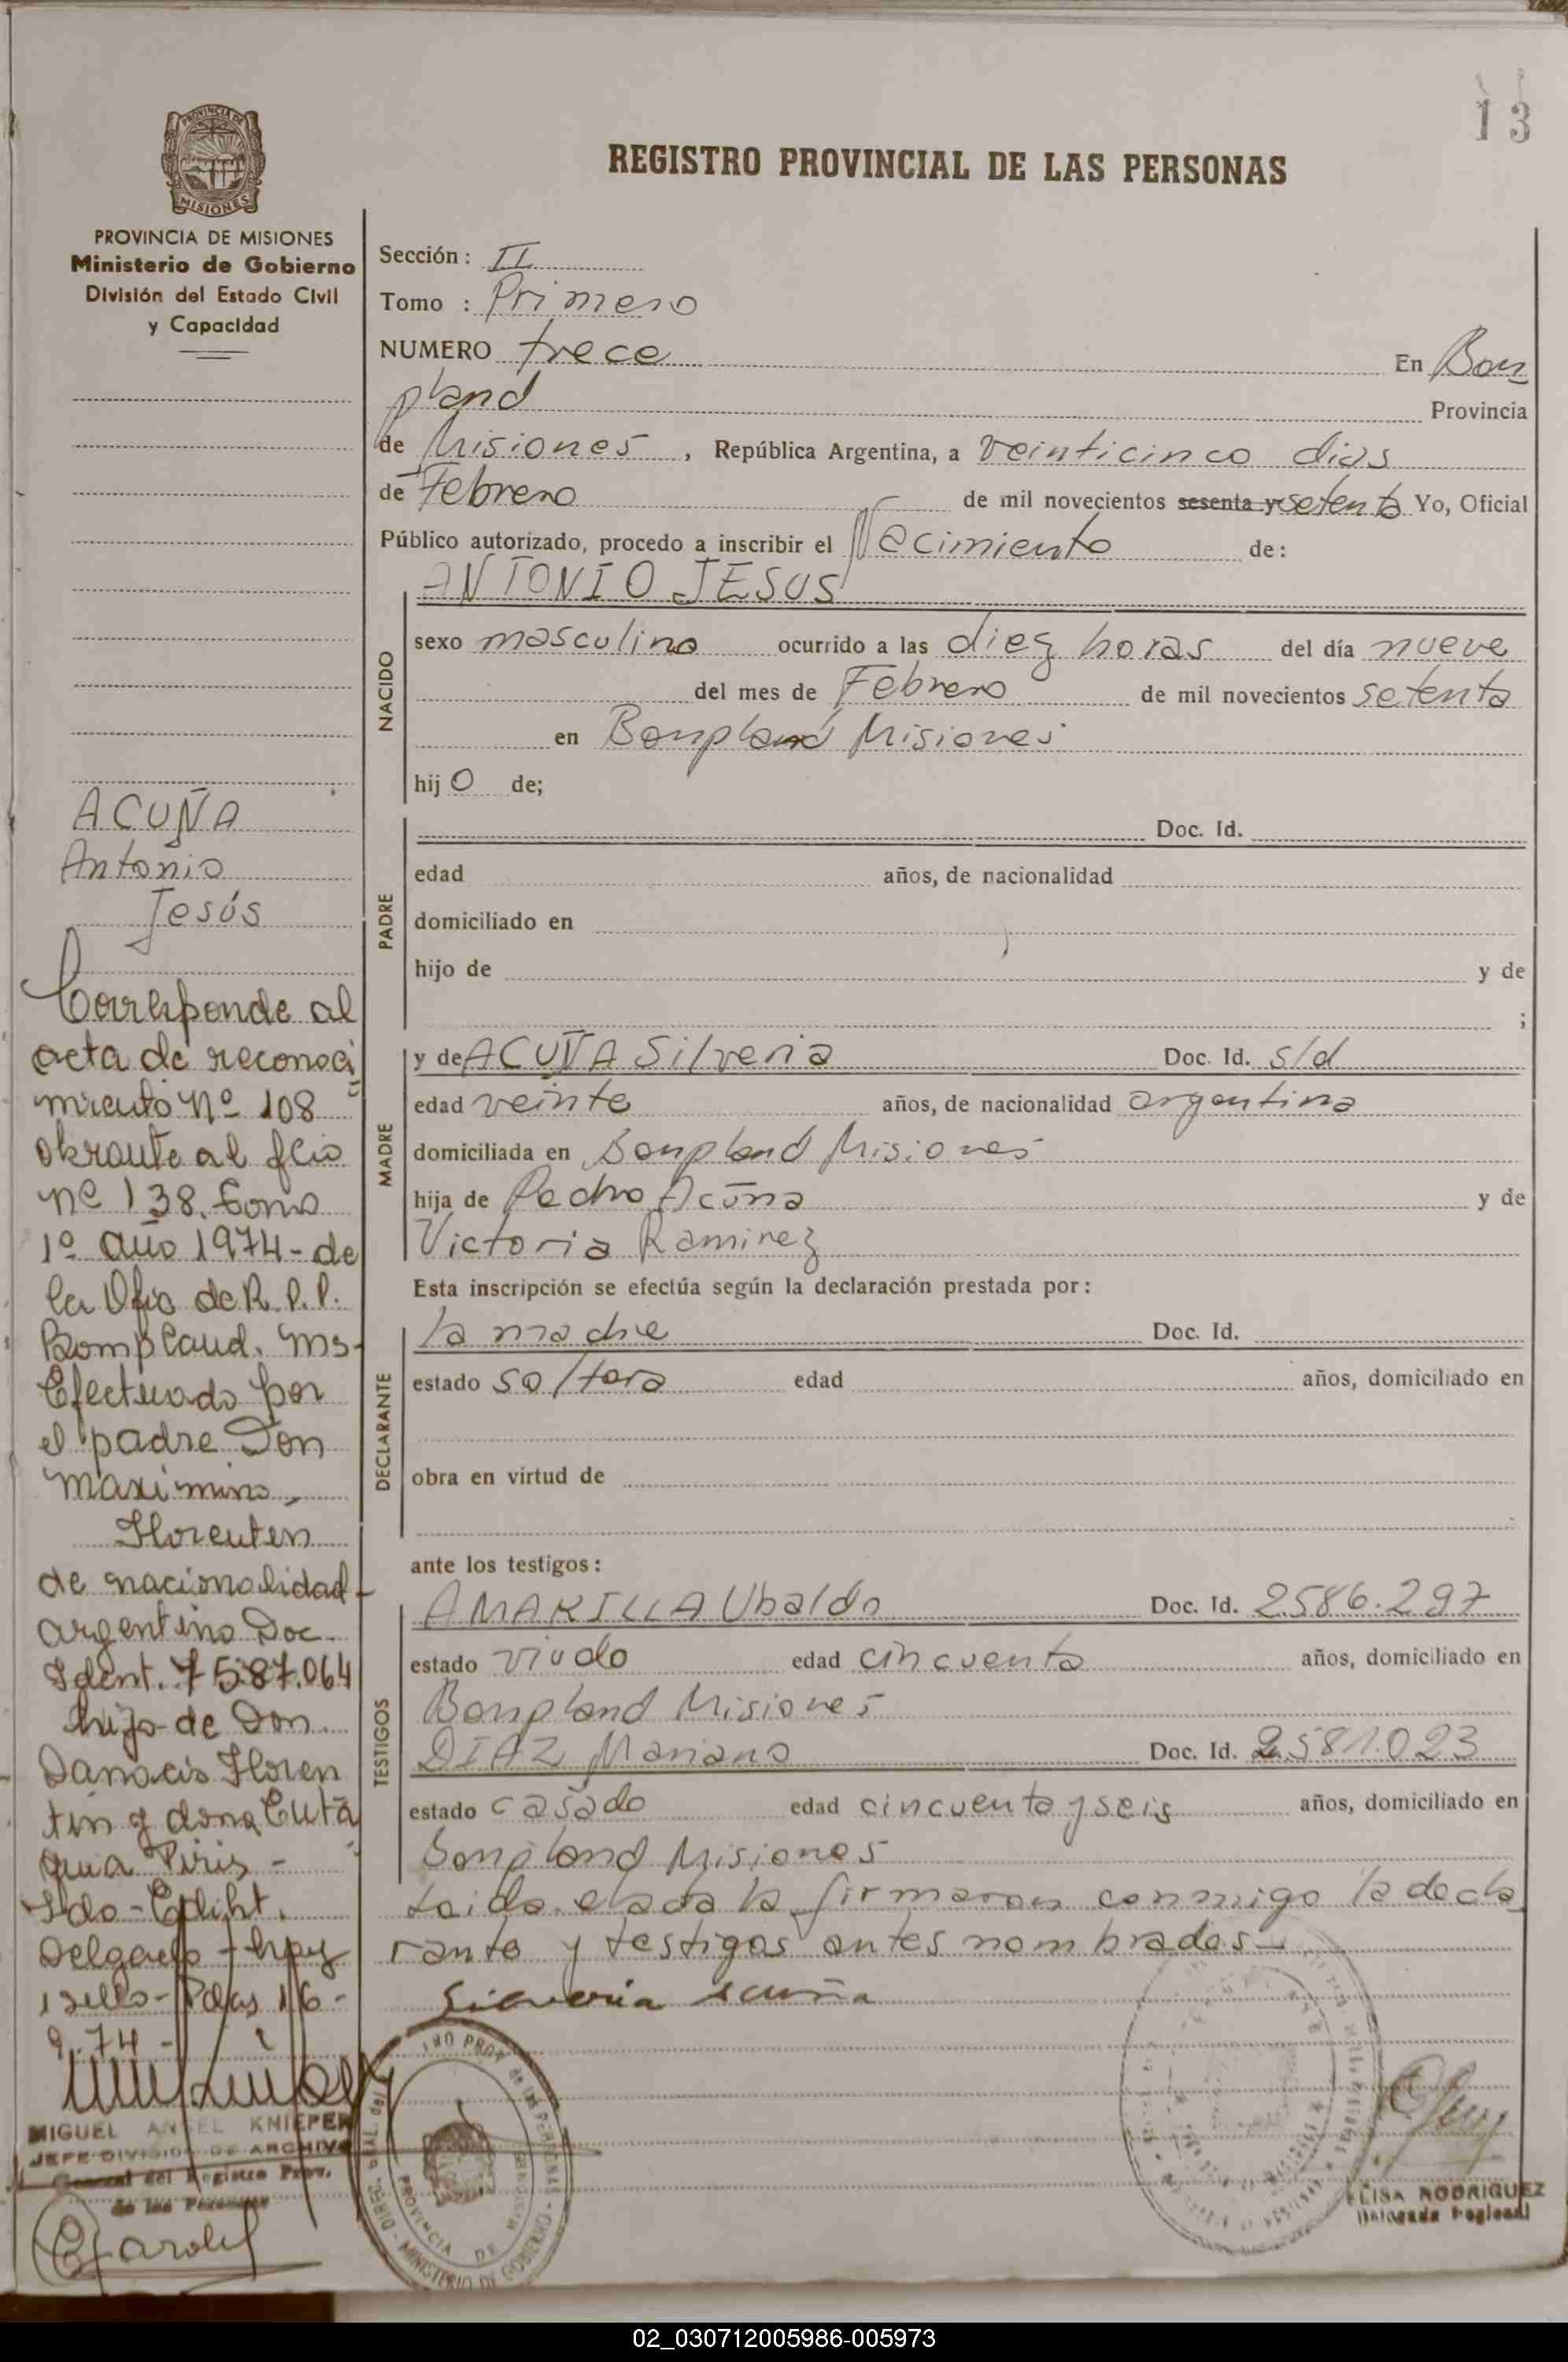 13
REGISTRO PROVINCIAL DE LAS PERSONAS
PROVINCIA DE
MISIONES
PROVINCIA DE MISIONES
Ministerio de Gobierno
División del Estado Civil
y Capacidad
Sección: II
Tomo : Primero
NUMERO trece En Bon
pland Provincia
de Misiones, República Argentina, a veinticinco dias
de Febrero de mil novecientos sesenta y setenta Yo, Oficial
Público autorizado, procedo a inscribir el Nacimiento de:
ANTONIO JESUS
NACIDO
sexo masculino ocurrido a las diez horas del día nueve
del mes de Febrero de mil novecientos setenta
en Bonpland Misiones
hijo de;
PADRE
Doc. Id.
edad años, de nacionalidad
domiciliado en
hijo de y de
;
MADRE
y de ACUÑA Silveria Doc. Id. s/d
edad veinte años, de nacionalidad argentina
domiciliada en Bonpland Misiones
hija de Pedro Acuña y de
Victoria Ramirez
Esta inscripción se efectúa según la declaración prestada por:
DECLARANTE
la madre Doc. Id.
estado soltera edad años, domiciliado en
obra en virtud de
ante los testigos:
TESTIGOS
AMARILLA Ubaldo Doc. Id. 2586.297
estado viudo edad cincuenta años, domiciliado en
Bonpland Misiones
DIAZ Mariano Doc. Id. 2581.023
estado casado edad cincuenta y seis años, domiciliado en
Bonpland Misiones
Leida el acta la firmaron conmigo la decla
rante y testigos antes nombrados
Silveria Acuña
ACUÑA
Antonio
Jesús
Corresponde al
acta de reconoci
miento Nº 108
obrante al flio
nº 138. Tomo
1º año 1974 - de
la Ofic de R. P. P.
Bompland. Ms-
Efectuado por
el padre Don
Maximino,
Florentin
de nacionalidad
argentino Doc.
Ident. 7587.064
hijo de Don
Florentin
tin y dona Euta
quia Piris -
Fdo - Ediht.
Delgado - hay
1 sello - Pdas 16-
9.74 -
MIGUEL ANGEL KNIEPER
JEFE DIVISION DE ARCHIVO
General del Registro Prov.
de las Personas
PROVINCIA DE MISIONES
MINISTERIO DE GOBIERNO
ELISA RODRIGUEZ
Delegada Regional
02_030712005986-005973